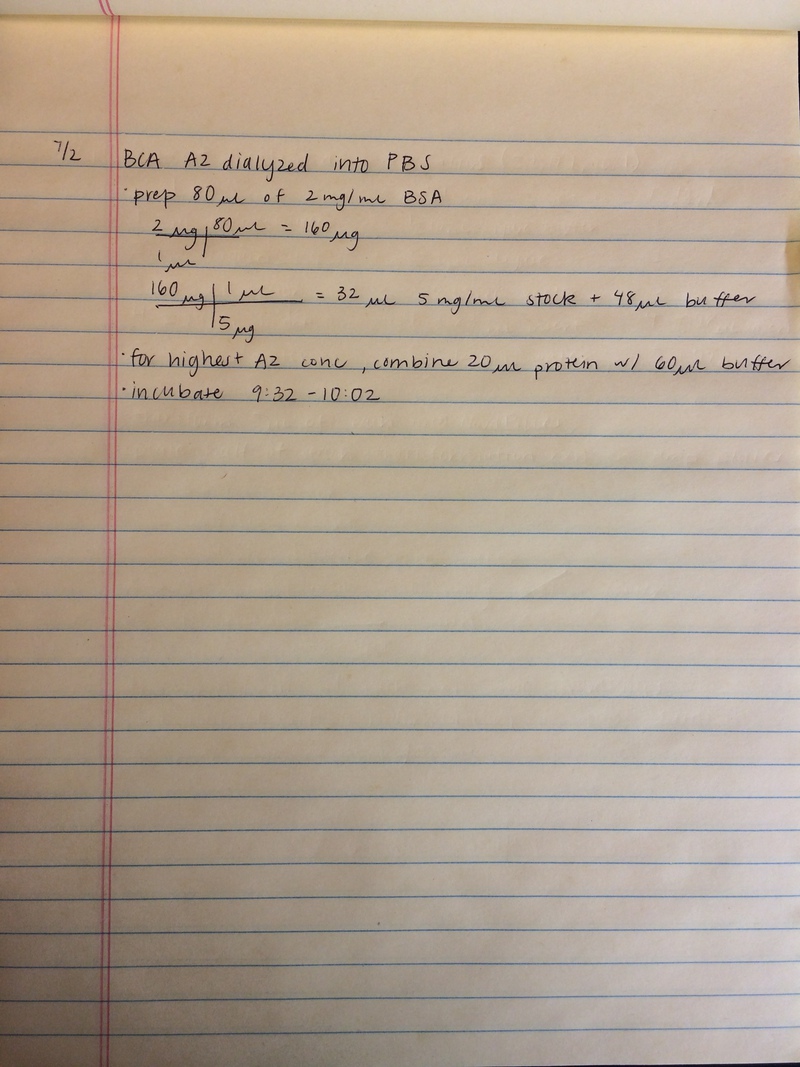 7/2 BCA A2 dialyzed into PBS
· prep 80 µL of 2 mg/mL BSA
2 µg | 80 µL = 160 µg
1 µL
160 µg | 1 µL = 32 µL 5 mg/mL stock + 48 µL buffer
| 5 µg
· for highest A2 conc, combine 20 µL protein w/ 60 µL buffer
· incubate 9:32 - 10:02